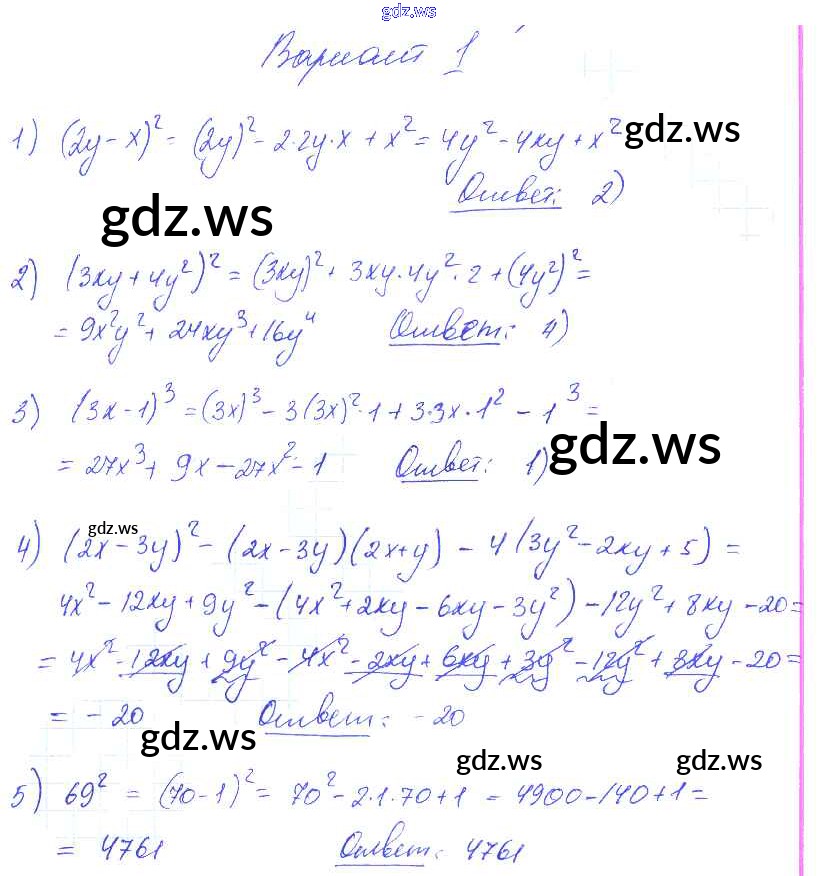 gdz.ws
Вариант 1
1) (2y - x)² = (2y)² - 2·2y·x + x² = 4y² - 4xy + x² gdz.ws
Ответ: 2)
gdz.ws
2) (3xy + 4y²)² = (3xy)² + 3xy·4y²·2 + (4y²)² =
= 9x²y² + 24xy³ + 16y⁴ Ответ: 4)
3) (3x - 1)³ = (3x)³ - 3(3x)²·1 + 3·3x·1² - 1³ =
= 27x³ + 9x - 27x² - 1 Ответ: 1) gdz.ws
gdz.ws
4) (2x - 3y)² - (2x - 3y)(2x + y) - 4(3y² - 2xy + 5) =
4x² - 12xy + 9y² - (4x² + 2xy - 6xy - 3y²) - 12y² + 8xy - 20 =
= 4x² - 12xy + 9y² - 4x² - 2xy + 6xy + 3y² - 12y² + 8xy - 20 =
= - 20 Ответ: - 20
gdz.ws gdz.ws gdz.ws
5) 69² = (70 - 1)² = 70² - 2·1·70 + 1 = 4900 - 140 + 1 =
= 4761 Ответ: 4761
gdz.ws